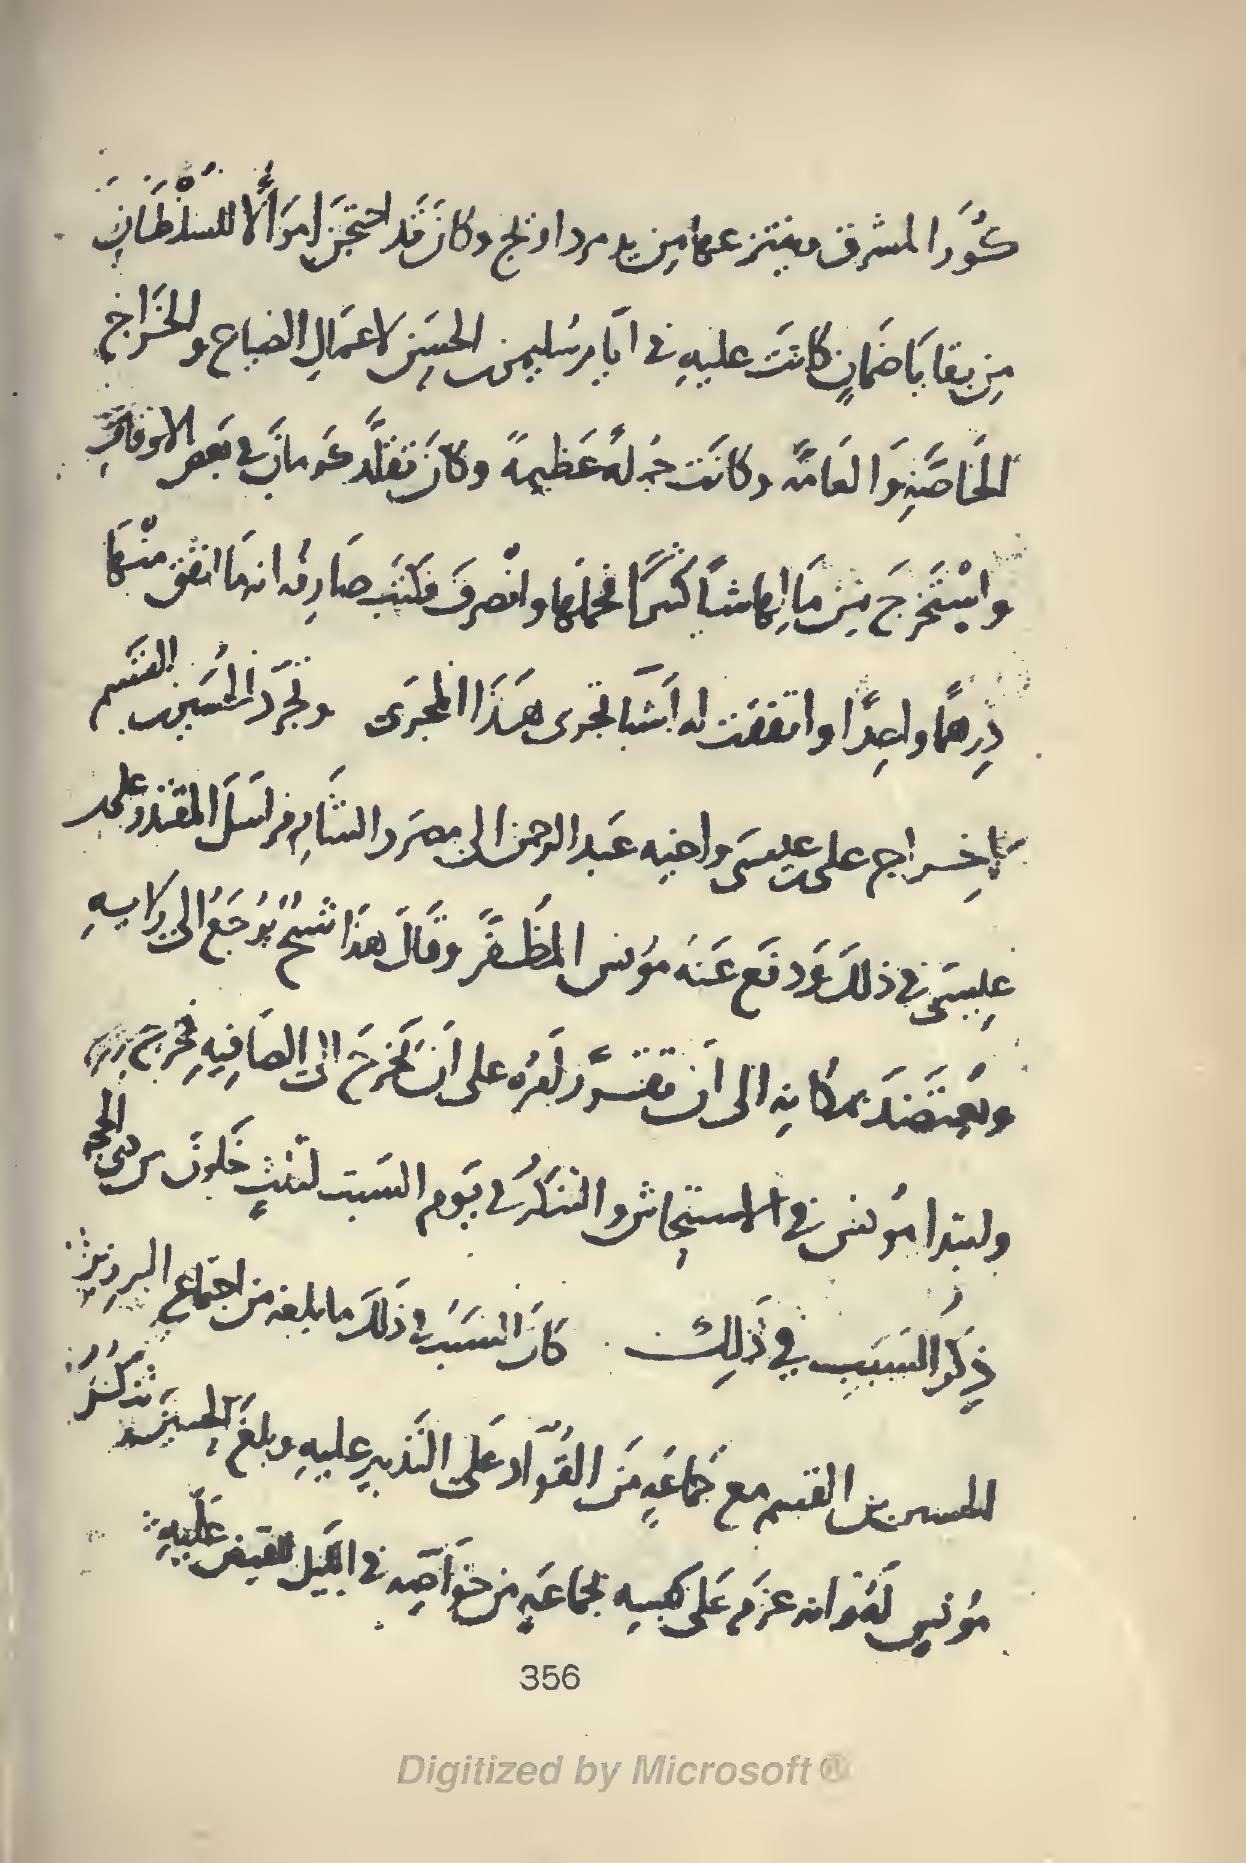 كُوَر المشرق وينتزعها من يد مرداويج وكان قد احتجز اموالا للسلطان
من بقايا ضمان كانت عليه في ايام سليمن بن الحسن لاعمال الضياع والخراج
الخاصة والعامه وكانت جملة عظيمة وكان تقلد كرمان في بعض الاوقات
واستخرج من مالها شيا كثيرا فحملها وانصرف فكتب صارفه انه ما انفق منها
درهما واحدا واتفقت له اشيا تجرى هذا المجرى وتجرد الحسين بن القسم
لاخراج على بن عيسى واخيه عبد الرحمن الى مصر والشام فراسل المقتدر على بن
عيسى في ذلك ودفع عنه مونس المظفر وقال هذا شيخ يُرجع الى رايه
ويعتضد بمكانه الى ان تقرر امره على ان يخرج الى الصافيه فخرج
وابتدا مونس في الاستيحاش والتنكر في يوم السبت لثلث خلون من ذى الحجه
ذكر السبب في ذلك كان السبب في ذلك ما بلغه من اجتماع الوزير
الحسين بن القسم مع جماعة من القواد على التدبير عليه وبلغ الحسين تنكر
مونس له وانه عزم على كبسه بجماعة من خواصه في الليل للقبض عليه
356
Digitized by Microsoft®